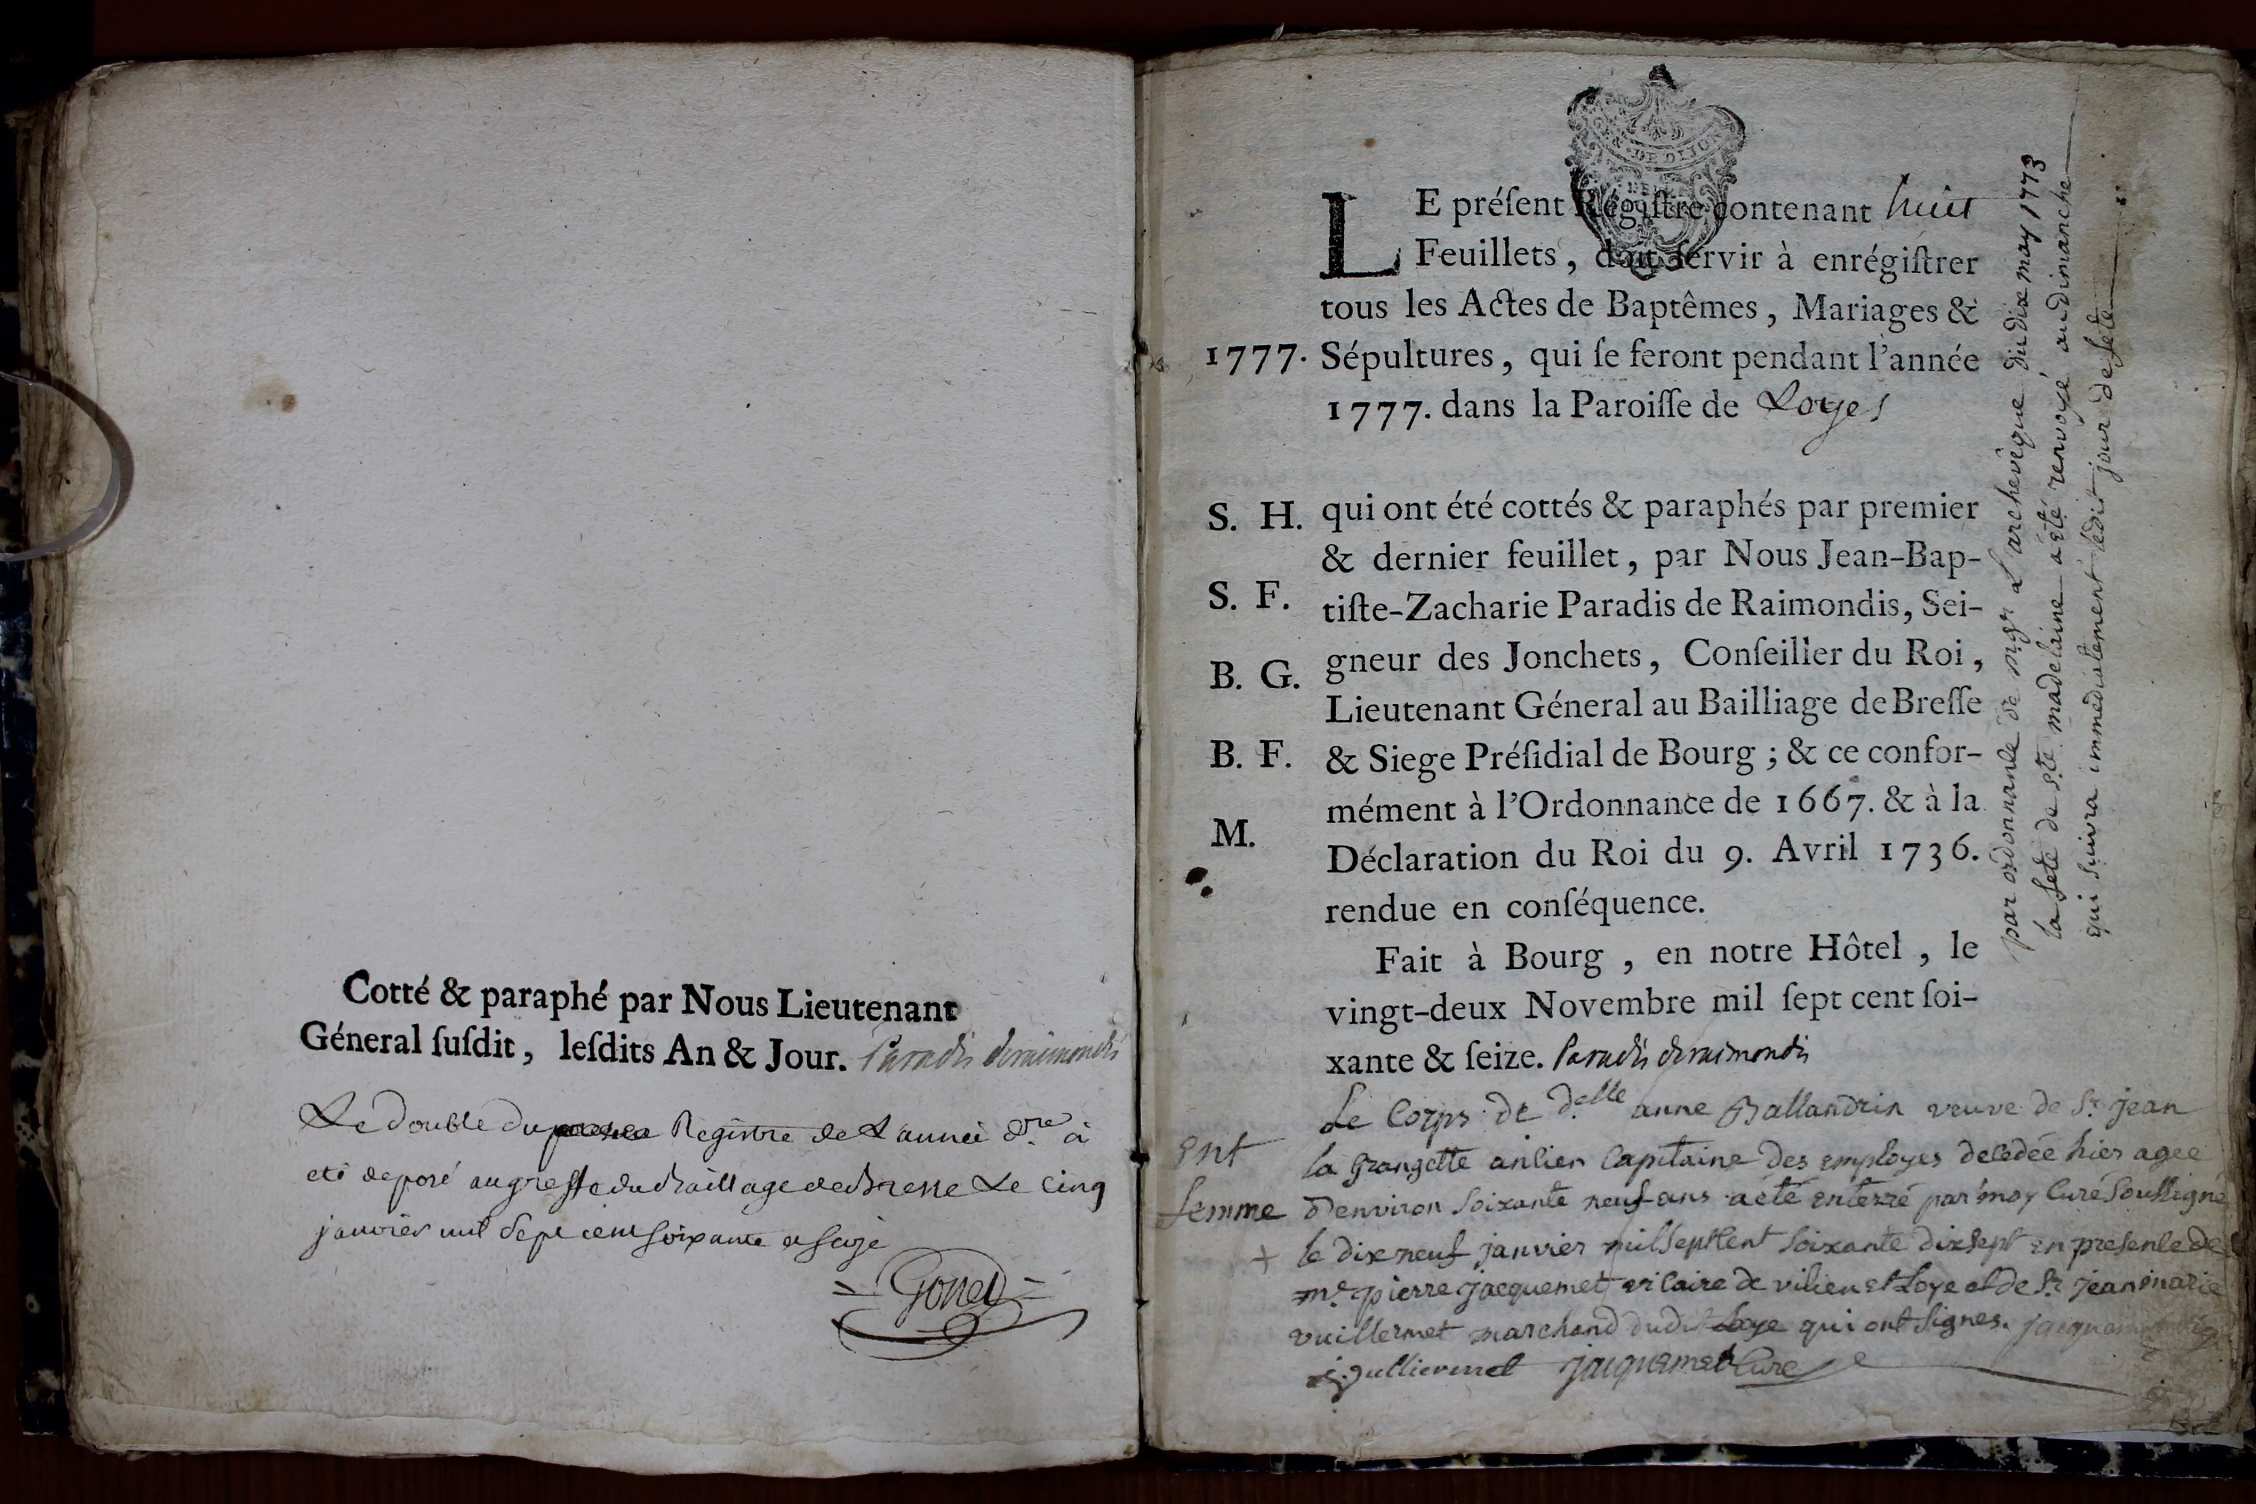 Cotté & paraphé par Nous Lieutenant
Géneral ſuſdit, leſdits An & Jour. Paradis deraimondis
Le double du Registre de L'année dre a
eté deposé au greffe du Bailliage de Bresse Le cinq
janvier mil sept cent soixante et seize
Gonet
DE DIJON
LE préſent Régiſtre contenant huit
Feuillets, doit ſervir à enrégiſtrer
tous les Actes de Baptêmes, Mariages &
1777. Sépultures, qui ſe feront pendant l'année
1777. dans la Paroiſſe de Loyes
S. H. qui ont été cottés & paraphés par premier
& dernier feuillet, par Nous Jean-Bap-
S. F. tiſte-Zacharie Paradis de Raimondis, Sei-
B. G. gneur des Jonchets, Conſeiller du Roi,
Lieutenant Géneral au Bailliage de Breſſe
B. F. & Siege Préſidial de Bourg ; & ce confor-
mément à l'Ordonnance de 1667. & à la
M. Déclaration du Roi du 9. Avril 1736.
rendue en conſéquence.
Fait à Bourg, en notre Hôtel, le
vingt-deux Novembre mil ſept cent ſoi-
xante & ſeize. Paradis deraimondis
par ordonnance de mgr L'archevêque du dix may 1773
la fete de Ste madelaine a eté renvoyé au dimanche
qui suivra immediatement ledit jour de fete
Le Corps de delle anne Ballandrin veuve de Sr jean
Ent la Grangette ancien Capitaine des employes decedée hier agee
femme D'environ soixante neuf ans a été enterré par moy Curé Soussigné
+ le dix neuf janvier mil sept Cent soixante dix sept en presence de
me pierre jacquemet vicaire de vilieu et Loye et de Sr jean marie
vuillermet marchand dudit Loye qui ont signes. jacquemet
j vullliermet jacquemet Curé